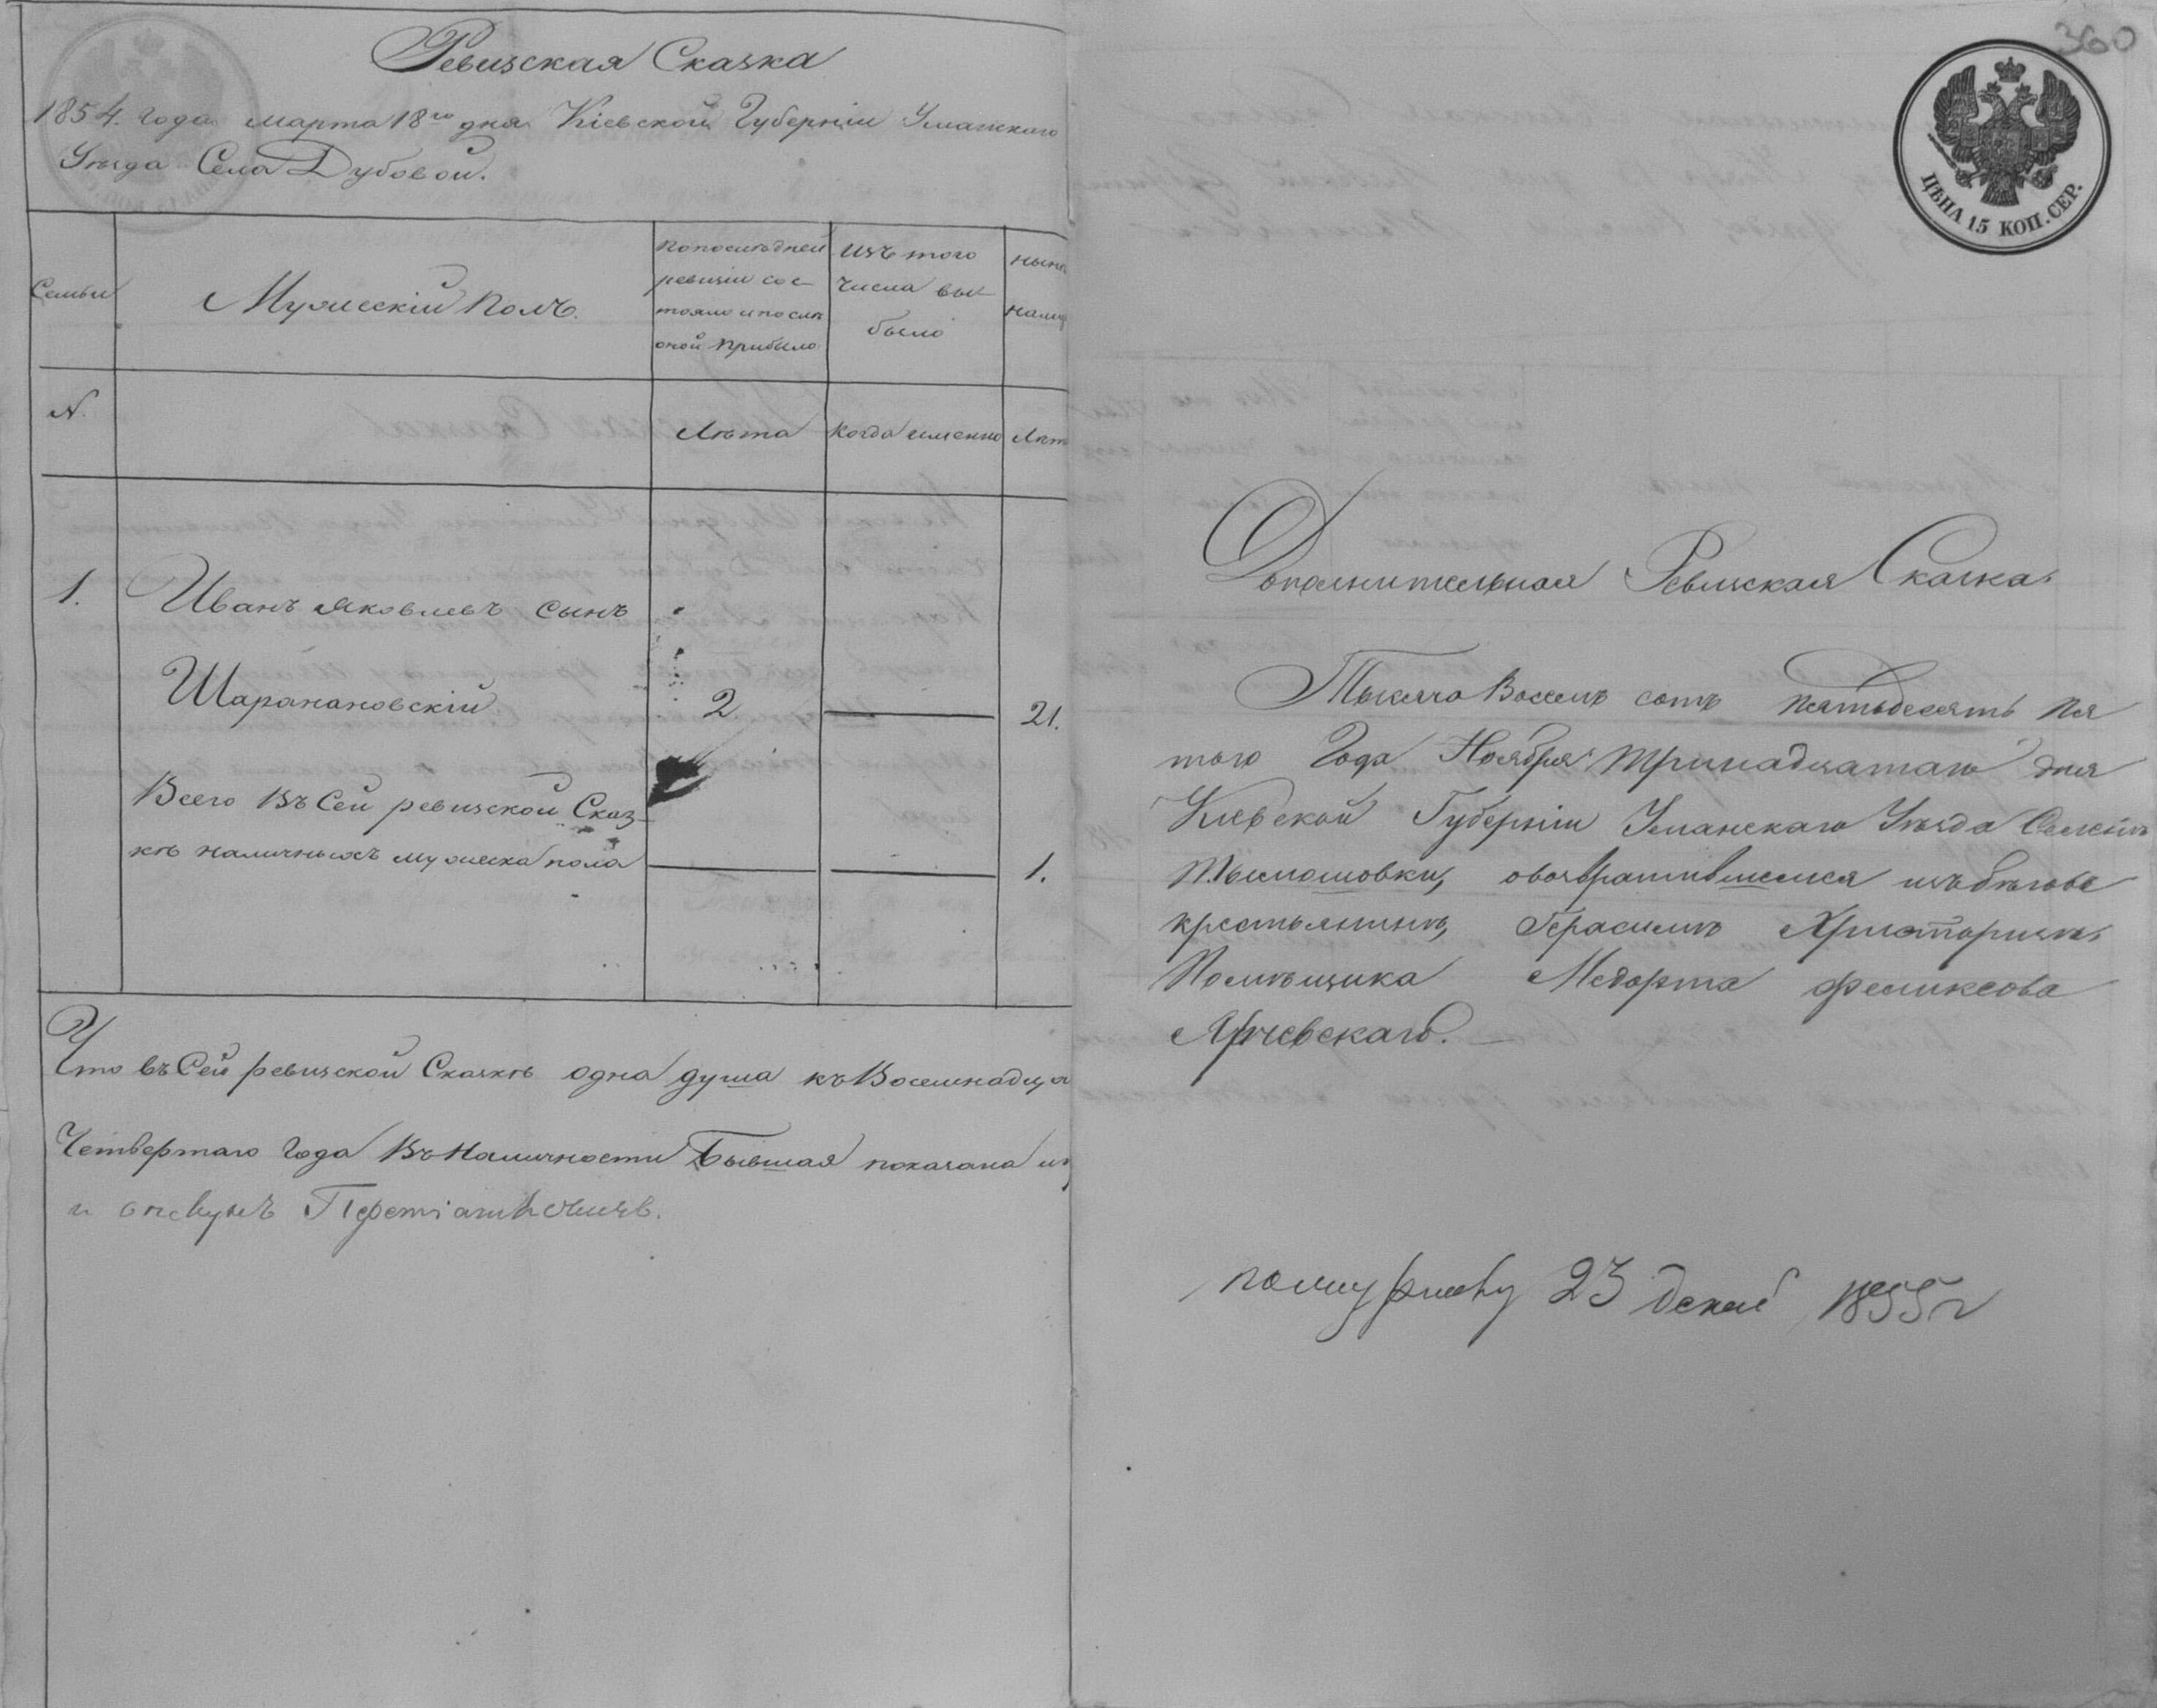 Ревизская Сказка
1854. года марта 18го дня Кіевской Губерніи Уманскаго
Уезда Села Дубовой.
Семьи
Мужескій Полъ.
По последней
ревизіи сос-
тояло и после
оной прибыло
Изъ того
числа вы-
было
ныне
налиц
N.
Лета
Когда именно
Лет
1.
Иванъ Яковлевъ сынъ
2
21.
Всего Въ Сей ревизской Сказ-
ке наличныхъ мужеска пола
1.
Что въ Сей ревизской Сказке одна душа къ Восемнадца
Четвертаго Года Въ Наличности Бывшая показана
и
360
ЦѢНА 15 КОП. СЕР.
Дополнительная Ревизская Сказка.
Тысяча Восемь сотъ пятьдесятъ Пя
таго Года Ноября тринадцатаго дня
Киевской Губерніи Уманскаго Уезда Селенія
овозвратившемся изъ бегове
крестьянине, Герасиме
Помещика Медорта Феликсова
23 декаб 1855 г